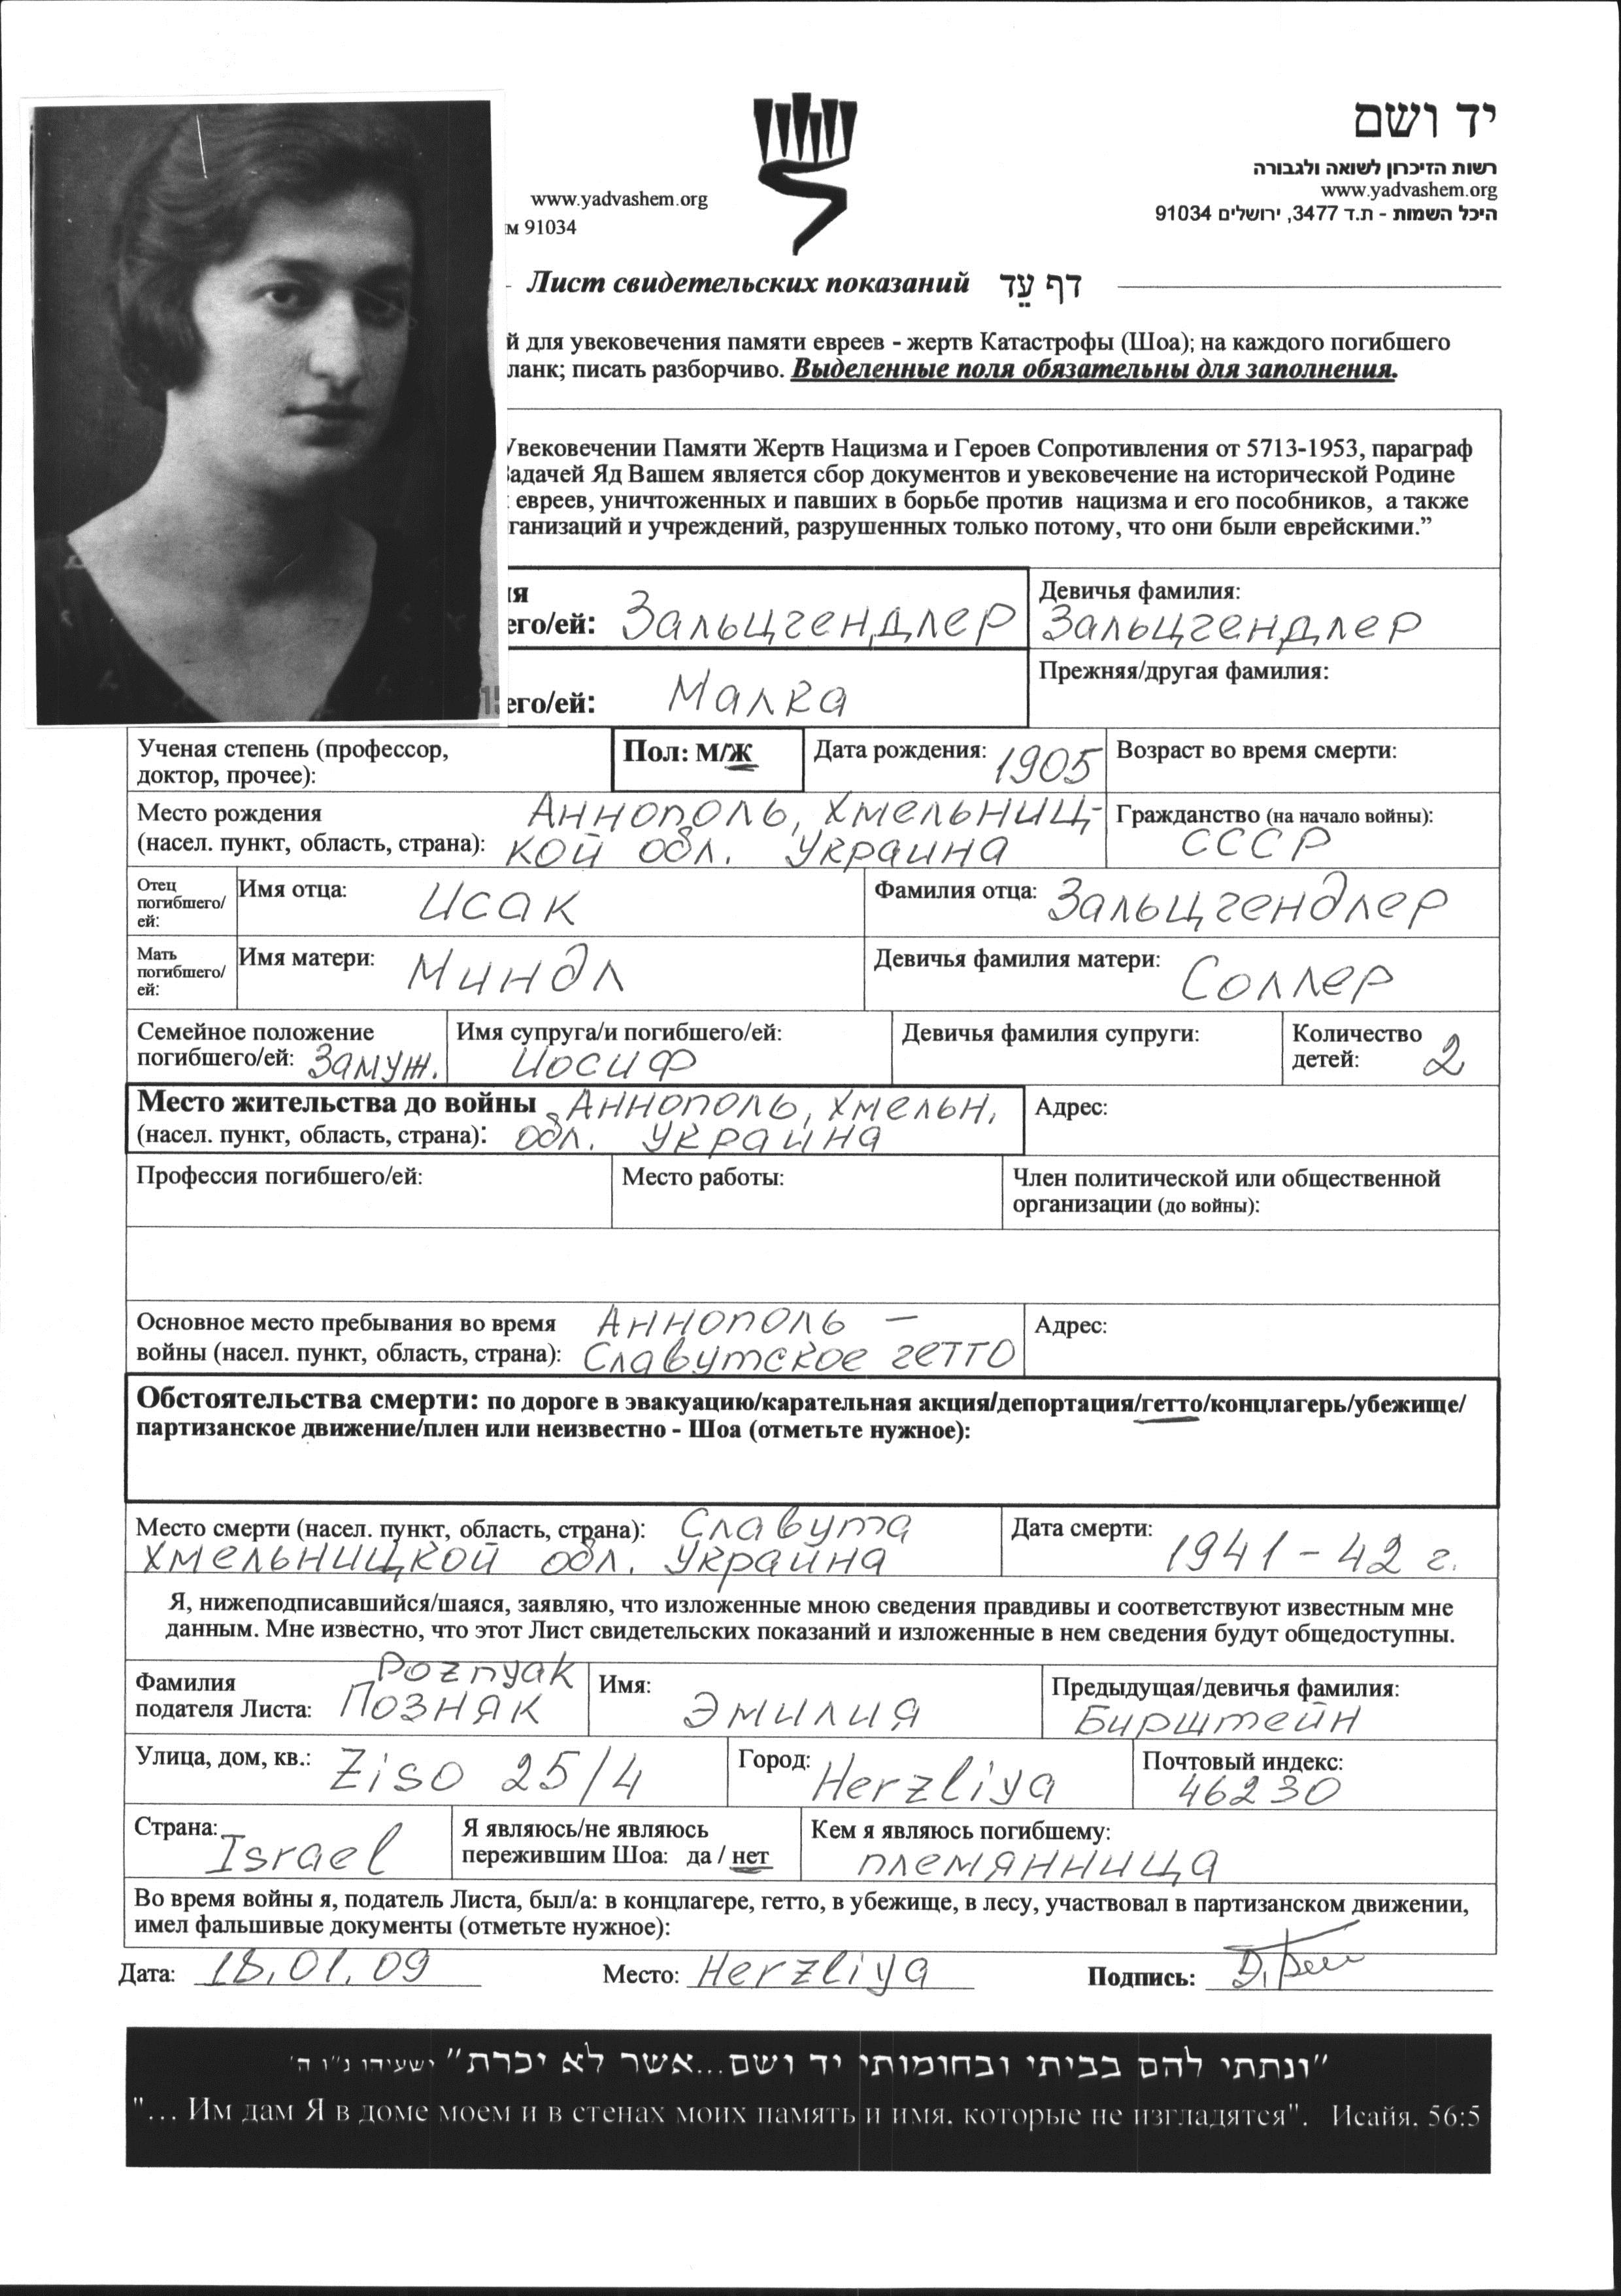 יד ושם
רשות הזיכרון לשואה ולגבורה
www.yadvashem.org
www.yadvashem.org
היכל השמות - ת.ד 3477, ירושלים 91034
м 91034
Лист свидетельских показаний דף עֵד
й для увековечения памяти евреев - жертв Катастрофы (Шоа); на каждого погибшего
ланк; писать разборчиво. Выделенные поля обязательны для заполнения.
Увековечении Памяти Жертв Нацизма и Героев Сопротивления от 5713-1953, параграф
Задачей Яд Вашем является сбор документов и увековечение на исторической Родине
евреев, уничтоженных и павших в борьбе против нацизма и его пособников, а также
ганизаций и учреждений, разрушенных только потому, что они были еврейскими.”
ия
его/ей: Зальцгендлер
Девичья фамилия:
Зальцгендлер
его/ей: Малка
Прежняя/другая фамилия:
15
Ученая степень (профессор,
доктор, прочее):
Пол: М/Ж
Дата рождения: 1905
Возраст во время смерти:
Место рождения Аннополь, Хмельниц-
(насел. пункт, область, страна): кой обл. Украина
Гражданство (на начало войны):
СССР
Отец
погибшего/
ей:
Имя отца: Исак
Фамилия отца: Зальцгендлер
Мать
погибшего/
ей:
Имя матери: Миндл
Девичья фамилия матери: Соллер
Семейное положение
погибшего/ей: Замуж.
Имя супруга/и погибшего/ей:
Иосиф
Девичья фамилия супруги:
Количество
детей: 2
Место жительства до войны Аннополь, Хмельн.
(насел. пункт, область, страна): обл. Украина
Адрес:
Профессия погибшего/ей:
Место работы:
Член политической или общественной
организации (до войны):
Основное место пребывания во время Аннополь —
войны (насел. пункт, область, страна): Славутское гетто
Адрес:
Обстоятельства смерти: по дороге в эвакуацию/карательная акция/депортация/гетто/концлагерь/убежище/
партизанское движение/плен или неизвестно - Шоа (отметьте нужное):
Место смерти (насел. пункт, область, страна): Славута
Хмельницкой обл. Украина
Дата смерти: 1941 - 42 г.
Я, нижеподписавшийся/шаяся, заявляю, что изложенные мною сведения правдивы и соответствуют известным мне
данным. Мне известно, что этот Лист свидетельских показаний и изложенные в нем сведения будут общедоступны.
Фамилия Poznyak
подателя Листа: Позняк
Имя:
Эмилия
Предыдущая/девичья фамилия:
Бирштейн
Улица, дом, кв.: Ziso 25/4
Город: Herzliya
Почтовый индекс:
46230
Страна: Israel
Я являюсь/не являюсь
пережившим Шоа: да / нет
Кем я являюсь погибшему:
племянница
Во время войны я, податель Листа, был/а: в концлагере, гетто, в убежище, в лесу, участвовал в партизанском движении,
имел фальшивые документы (отметьте нужное):
Дата: 18.01.09 Место: Herzliya Подпись:
"ונתתי להם בביתי ובחומותי יד ושם...אשר לא יכרת" ישעיהו נ"ו ה'
"... Им дам Я в доме моем и в стенах моих память и имя, которые не изгладятся". Исайя, 56:5